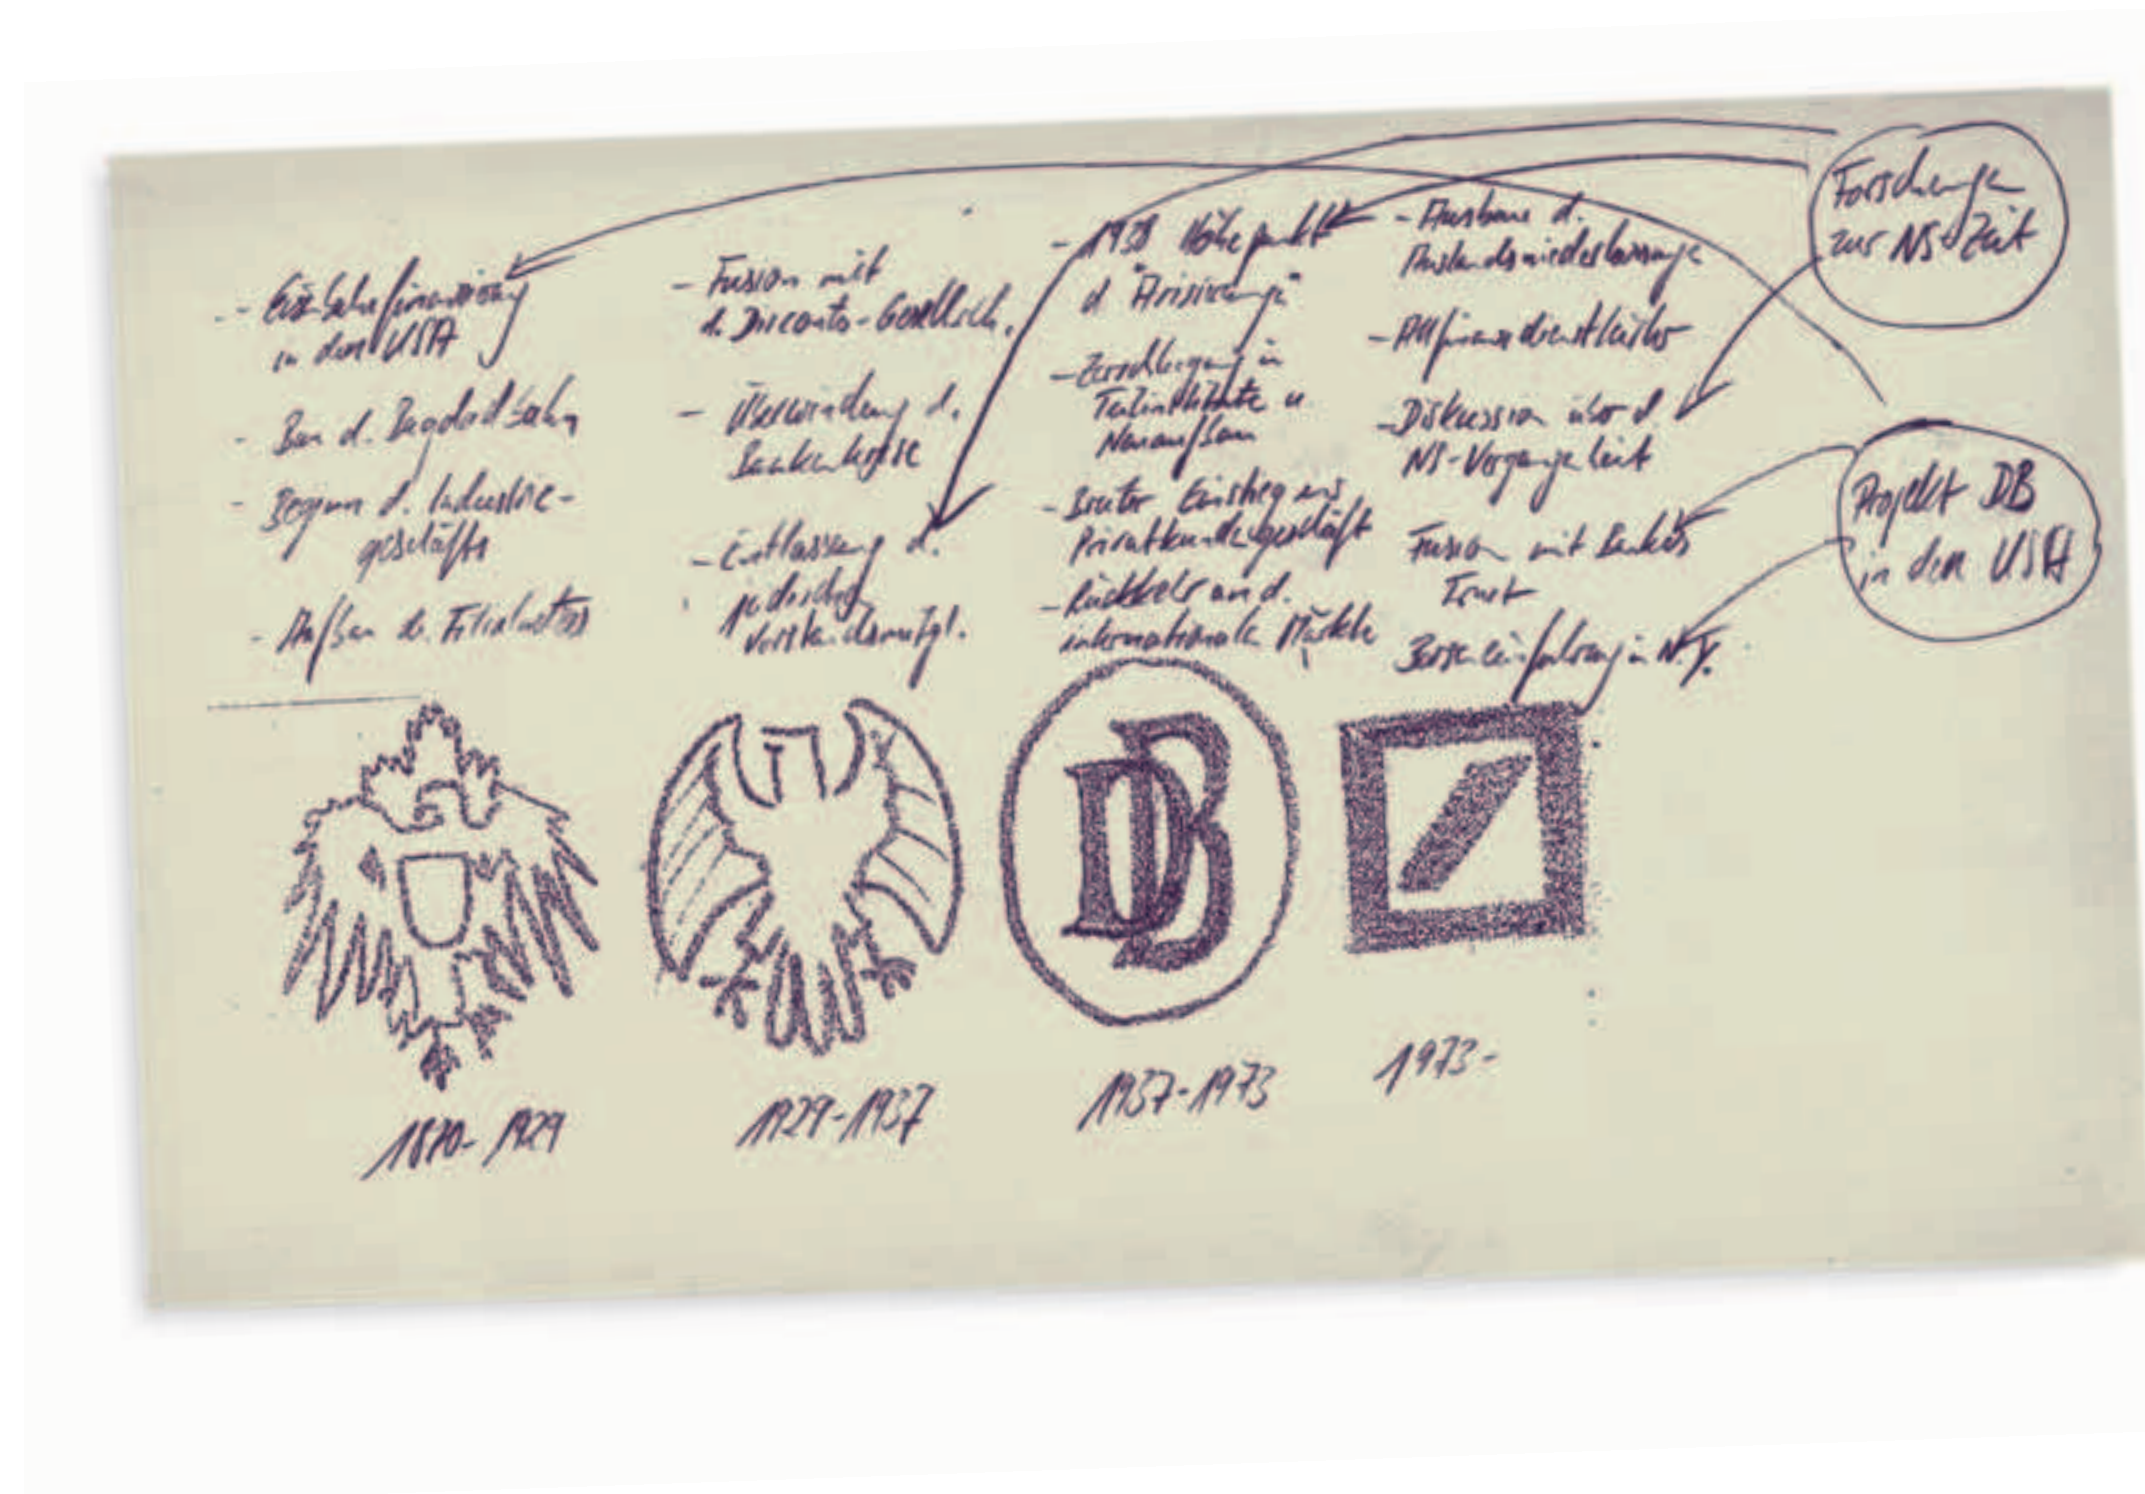 - Eisenbahnfinanzierung
in den USA
- Bau d. Bagdadbahn
- Beginn d. Industrie-
geschäfts
- Aufbau d. Filialnetzes
- Fusion mit
d. Disconto-Gesellsch.
- Überwindung d.
Bankenkrise
- Entlassung d.
jüdischen
Vorstandsmitgl.
- 1938 Höhepunkt
d. "Arisierung"
- Zerschlagung in
Teilinstitute u.
Neuaufbau
- Breiter Einstieg ins
Privatkundengeschäft
- Rückkehr an d.
internationale Märkte
- Ausbau d.
Auslandsniederlassunge
- Allfinanzdienstleister
- Diskussion über d.
NS-Vergangenheit
Fusion mit Bankers
Trust
Börseneinführung in N.Y.
Forschungen
zur NS-Zeit
Projekt DB
in den USA
DB
1870-1929
1929-1937
1937-1973
1973-